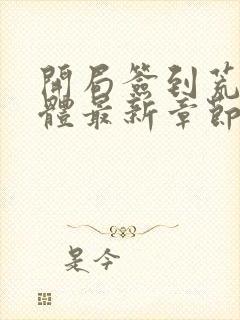 開局簽到荒
體最新章節
是今